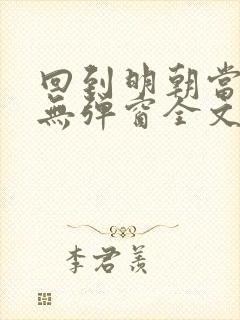 回到明朝当
無弹窗全文
李君羡